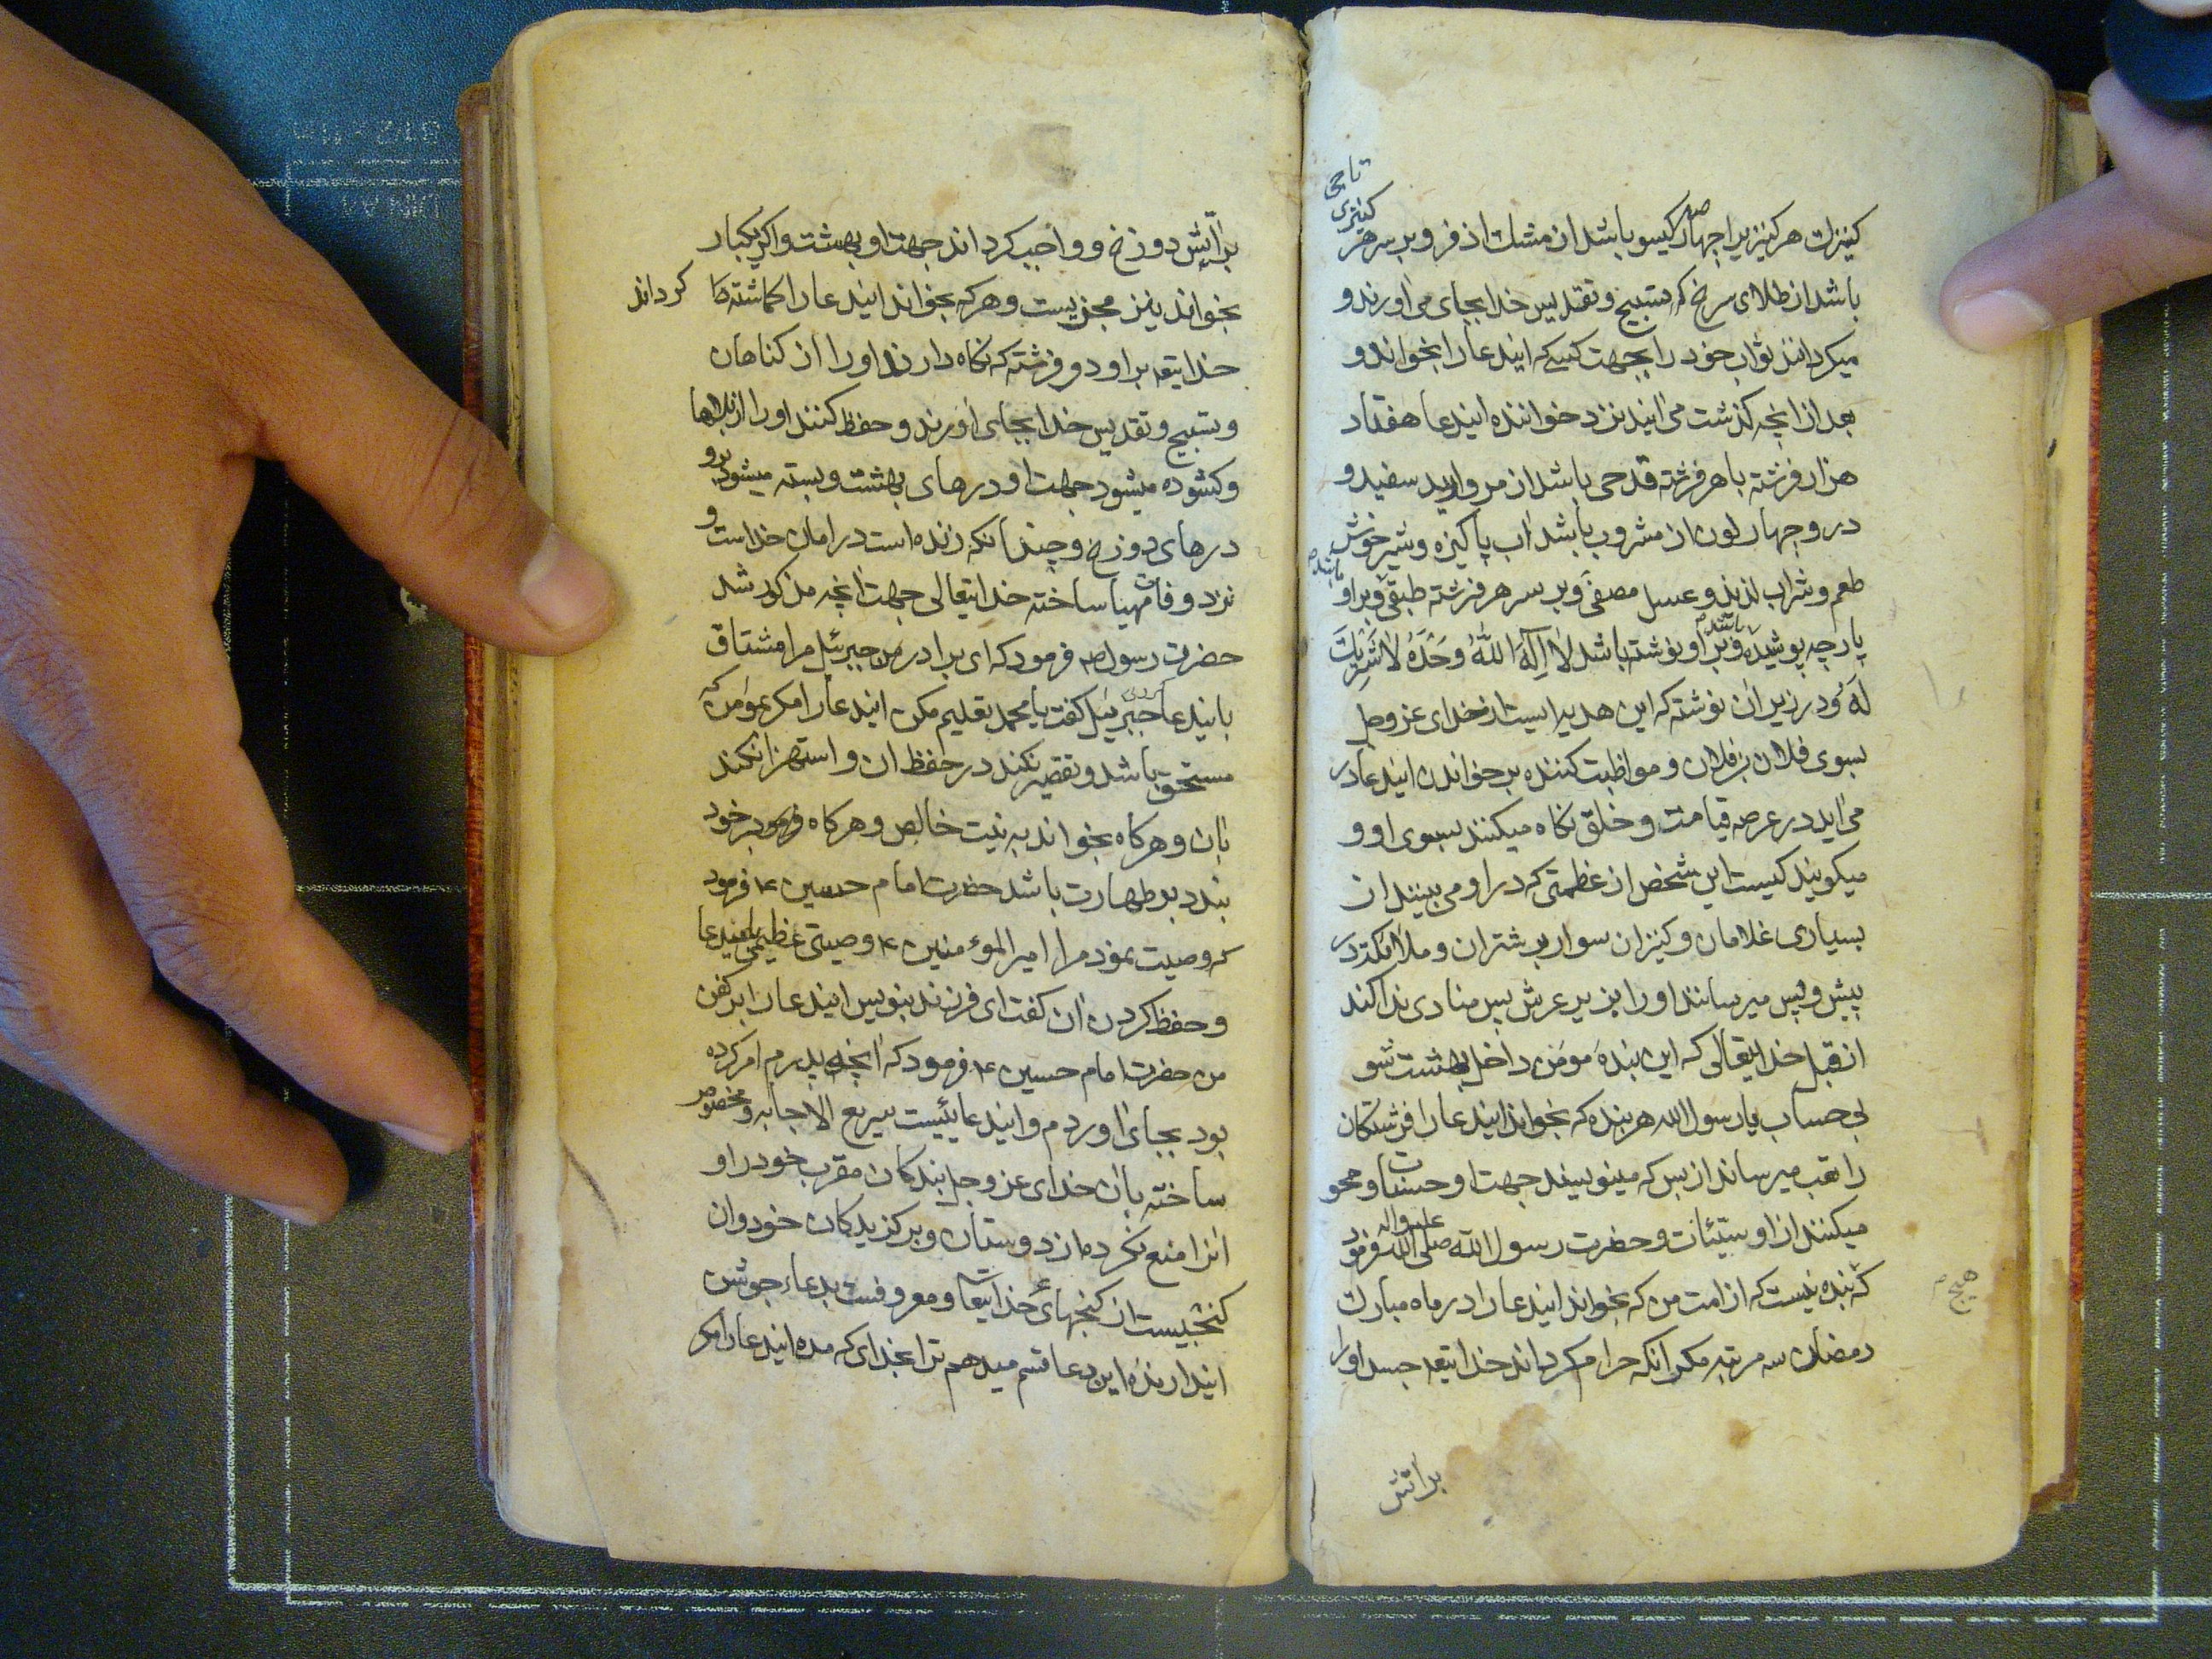 کنیزان هر کنیزیرا چهار کیسو باشد از مشك اذفر و بر سر هر کنیزی تاجی
باشد از طلای سرخ که تسبیح و تقدیس خدا بجای می اورند و
میکردانند ثواب خود را بجهت کسی که ایندعا را بخواند و
بعد از انچه کذشت می ایند نزد خواننده ایندعا هفتاد
هزار فرشته با هر فرشته قدحی باشد از مروارید سفید و
درو چهار لون از مشروب باشد اب پاکیزه و شیر خوش
طعم و شراب لذیذ و عسل مصفی و بر سر هر فرشته طبقی و بر او
پارچه پوشیده و بر او نوشته باشد لا اِلٰهَ اِلَّا اللّٰهُ وَحْدَهُ لا شَرِیكَ
لَهُ و در زیر ان نوشته که این هدیه ایست از خدای عز و جل
بسوی فلان بن فلان و مواظبت کننده بر خواندن ایندعا در
می اید در عرصه قیامت و خلق نکاه میکنند بسوی او و
میکویند کیست این شخص از عظمتی که در او می بینند از
بسیاری غلامان و کنیزان سوار بر شتران و ملائکه در
پیش و پس میرسانند او را بزیر عرش پس منادی ندا کند
از قبل خدایتعالی که این بنده مومن داخل بهشت شو
بی حساب یا رسول الله هر بنده که بخواند ایندعا را فرشتکان
را تعب میرساند از بس که مینویسند جهت او حسنات و محو
میکنند از او سیئات و حضرت رسول الله صلی الله علیه واله فرمود
که هیچ بنده نیست که از امت من که بخواند ایندعا را در ماه مبارك
رمضان سه مرتبه مکر انکه حرام کرداند خدایتعه جسد او را
براتش
بر اتش دوزخ و واجب کرداند جهت او بهشت و اکر یکبار
بخواند نیز مجزیست و هر که بخواند ایندعا را کماشته کرداند
خدایتعه بر او دو فرشته که نکاه دارند او را از کناهان
و تسبیح و تقدیس خدا بجای اورند و حفظ کنند او را از بلاها
و کشوده میشود جهت او درهای بهشت و بسته میشود برو
درهای دوزخ و چندانکه زنده است در امان خداست و
نزد وفات مهیا ساخته خدایتعالی جهت انچه مذکور شد
حضرت رسول ص فرمود که ای برادر من جبرئیل مرا مشتاق
کردی بایندعا جبرئیل کفت یا محمد تعلیم مکن ایندعا را مکر بمومن که
مستحق باشد و تقصیر نکند در حفظ ان و استهزا نکند
بان و هر کاه بخواند به نیت خالص و هر کاه بر خود
بندد بر طهارت باشد حضرت امام حسین ع فرمود
که وصیت نمود مرا امیر المؤمنین ع وصیتی عظیمی بایندعا
و حفظ کردن ان کفت ای فرزند بنویس ایندعا را بر کفن
من حضرت امام حسین ع فرمود که انچه پدرم امر کرده
بود بجای اوردم و ایندعائیست سریع الاجابه و مخصوص
ساخته بان خدای عز و جل بندکان مقرب خود را و
انرا منع نکرده از دوستان و برکزیدکان خود و ان
کنجیست از کنجهای خدایتعا و معروفست بدعاء جوشن
ایندارنده این دعا قسم میدهم ترا بخدای که مده ایندعا را مکر